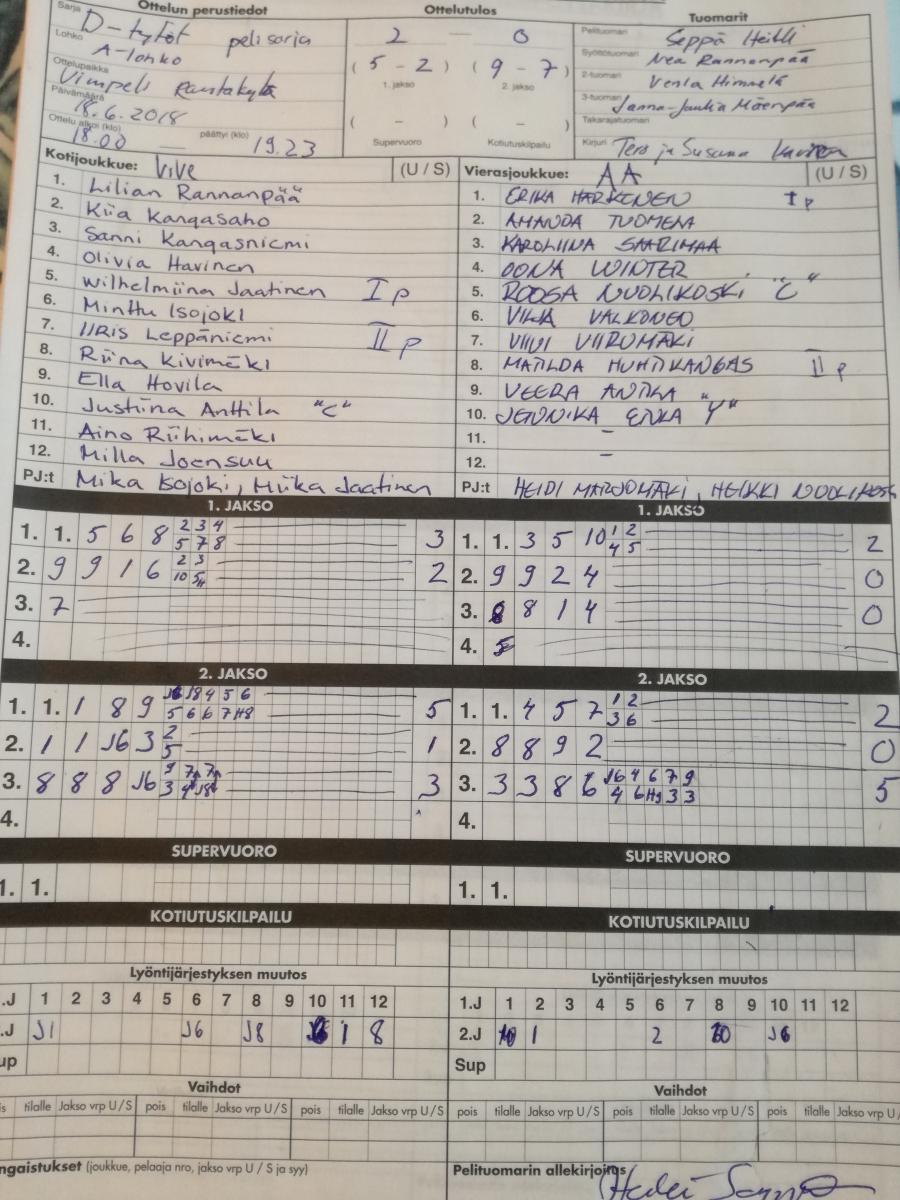 Ottelun perustiedot
Sarja D-tytöt pelisarja
Lohko A-lohko
Ottelupaikka Vimpeli
Päivämäärä 18.6.2018
Ottelu alkoi (klo) 18.00 — päättyi (klo) 19.23
Ottelutulos
2 — 0
( 5 - 2 ) ( 9 - 7 )
1. jakso 2. jakso
( - ) ( - )
Supervuoro Kotiutuskilpailu
Tuomarit
Pelituomari Seppä Heikki
Syöttötuomari Nea Rannanpää
2-tuomari Venla Himmelä
3-tuomari Janna-Jaukia Mäenpää
Takarajatuomari
Kirjuri Tero ja Susanna
Kotijoukkue: ViVe (U / S)
1. Lilian Rannanpää
2. Kiia Kangasaho
3. Sanni Kangasniemi
4. Olivia Havinen
5. Wilhelmiina Jaatinen I p
6. Minttu Isojoki
7. IIRis Leppäniemi II p
8. Riina Kivimäki
9. Ella Hovila
10. Justiina Anttila "C"
11. Aino Riihimäki
12. Milla Joensuu
PJ:t Mika Isojoki, Miika Jaatinen
Vierasjoukkue: AA (U / S)
1. ERIKA HARKONEN I p
2. AMANDA TUOMELA
3. KAROLIINA SAARIMAA
4. OONA WINTER
5. ROOSA NUOLIKOSKI "C"
6. VILJA VALKONEN
7. VIIVI VIIROMÄKI
8. MATILDA HUHTIKANGAS II p
9. VEERA ANTILA
10. JENNIKA ERKA "Y"
11. -
12. -
PJ:t HEIDI MARJOMÄKI, HEIKKI NUOLIKOSKI
1. JAKSO
1. 1. 5 6 8 2 3 4 3
5 7 8
2. 9 9 1 6 2 3 2
10
3. 7
4.
1. JAKSO
1. 1. 3 5 10 1 2 2
4 5
2. 9 9 2 4 0
3. 8 8 1 4 0
4. 5
2. JAKSO
1. 1. 1 8 9 J6 J8 4 5 6 5
5 6 6 7 H8
2. 1 1 J6 3 2 1
5
3. 8 8 8 J6 9 7 7 3
3 4 J8
4.
2. JAKSO
1. 1. 4 5 7 1 2 2
3 6
2. 8 8 9 2 0
3. 3 3 8 6 J6 4 6 7 9 5
4 6 H9 3 3
4.
SUPERVUORO
1. 1.
SUPERVUORO
1. 1.
KOTIUTUSKILPAILU
KOTIUTUSKILPAILU
Lyöntijärjestyksen muutos
.J 1 2 3 4 5 6 7 8 9 10 11 12
.J J1 J6 J8 1 8
up
Lyöntijärjestyksen muutos
1.J 1 2 3 4 5 6 7 8 9 10 11 12
2.J 1 2 10 J6
Sup
Vaihdot
is tilalle Jakso vrp U / S pois tilalle Jakso vrp U / S pois tilalle Jakso vrp U / S
Vaihdot
pois tilalle Jakso vrp U / S pois tilalle Jakso vrp U / S pois tilalle Jakso vrp U
ngaistukset (joukkue, pelaaja nro, jakso vrp U / S ja syy)
Pelituomarin allekirjoitus